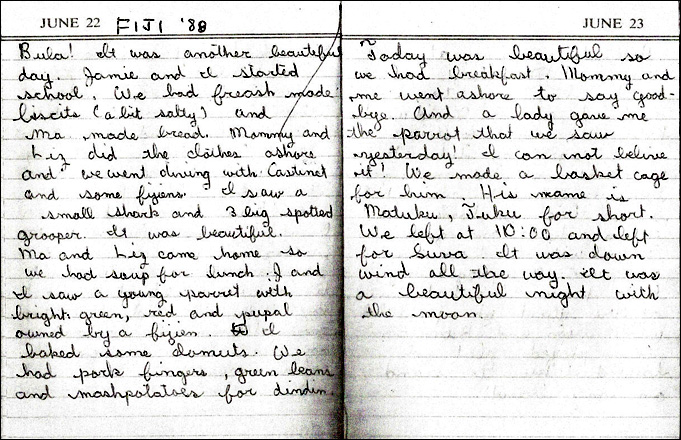 JUNE 22 FIJI '88
Bula! It was another beautiful
day. Jamie and I started
school. We had freash made
biscits (a bit salty) and
Ma made bread. Mommy and
Liz did the clothes ashore
and we went diving with Castinet
and some fijiens. I saw a
small shark and 3 big spotted
grooper. It was beautiful.
Ma and Liz came home so
we had soup for lunch. J and
I saw a young parret with
bright green, red and pupal
owned by a fijien. I
baked some donuts. We
had pork fingers, green beans
and mashpotatoes for dindin.
JUNE 23
Today was beautiful so
we had breakfast. Mommy and
me went ashore to say good-
bye. And a lady gave me
the parrot that we saw
yesterday! I can not belive
it! We made a basket cage
for him. His name is
Matuku, Tuku for short.
We left at 10:00 and left
for Suva. It was down
wind all the way. It was
a beautiful night with
the moon.